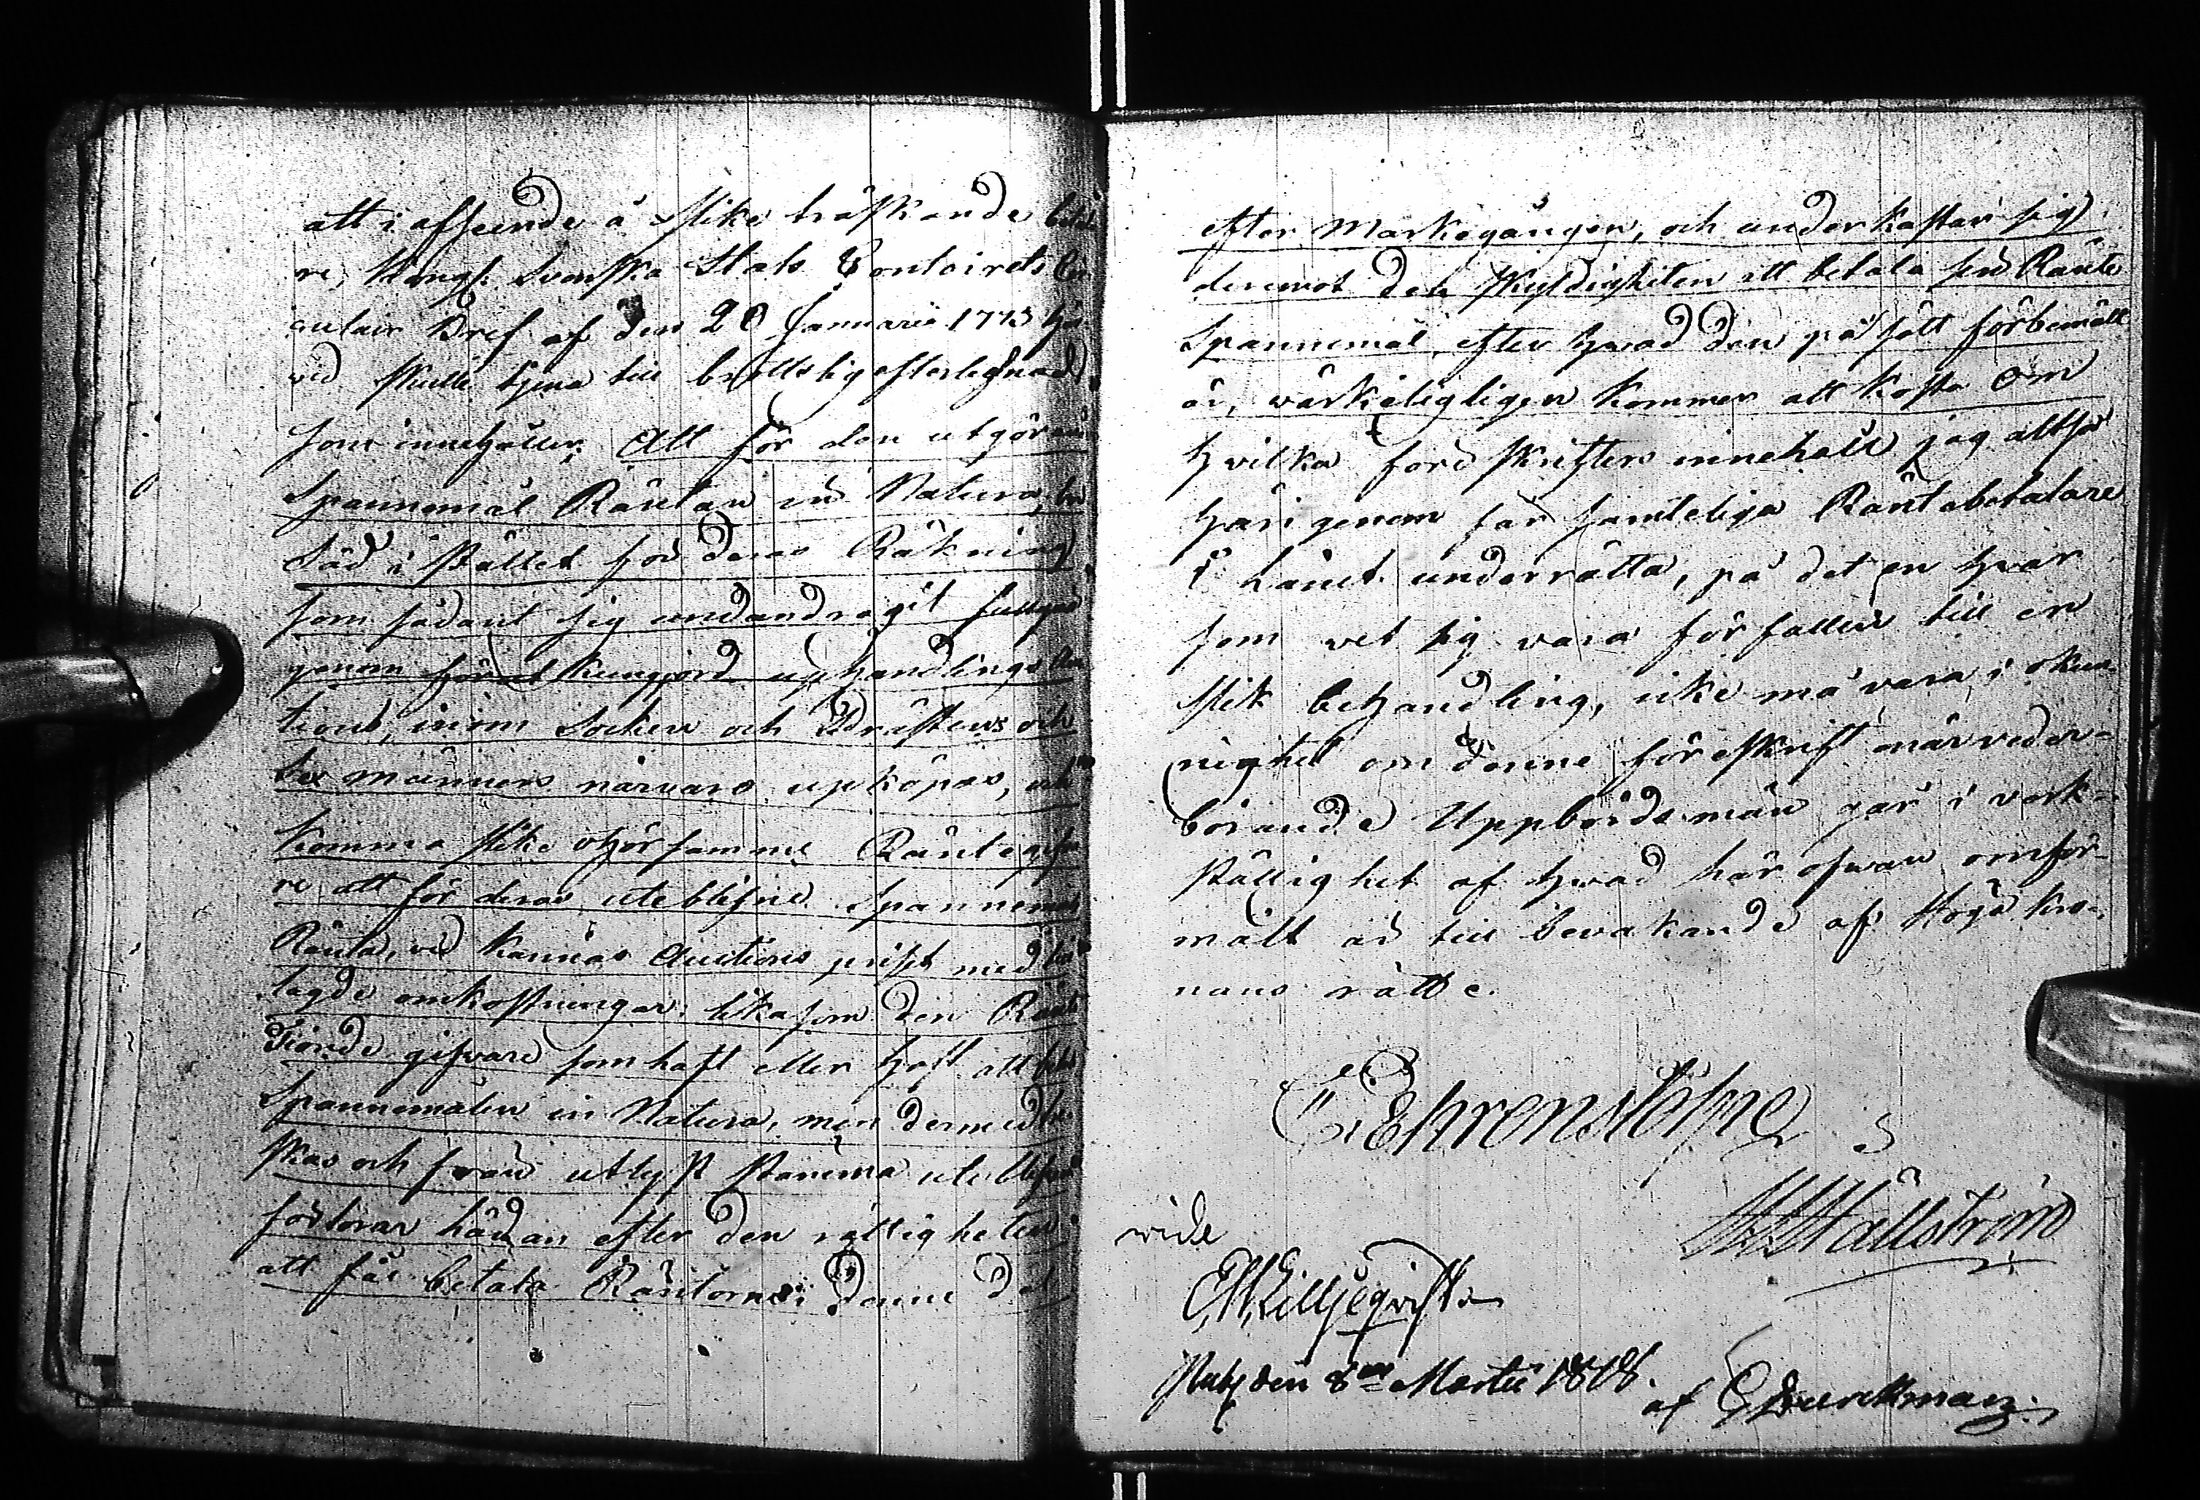 att i afseende å slike tråskande
re, Kongl. Svenska Stats Contoirets
culair Bref af den 20 Januarii 1773
vid skulle tjena till behöllig efterlefnad
som innehåller; Att för den utgörande
Spannemåls Räntan in Natura,
Säd i stället för deras Räkning
som sådant sig undandragit
genom förut kungjord uphandlings
tions, inom Socken och Prästens och
bes männers närvaro upköpas, och
komma slike ohörsamme Räntegifva
re att för deras uteblifne Spannemåls
Ränta, ej kännas Auctions priset med
lagde omkostningar, lika som den Ränte
Tionde gifvare som haft eller haft att
Spannemålen in Natura, men
skas och från utlyst stämma uteblifva
förlorar hädan efter den rättigheten
att få betala Räntorne i denne del
efter Markegången, och underkastar sig
deremot den skyldigheten att betala sin Ränte
Spannemål, efter hvad den på sätt förbemält
är, värkeligligen kommer att kosta Om
hvilka föreskrifters innehåll jag altså
härigenom får samteliga Räntebetalare
i Länet underrätta, på det en hvar
som vet sig vara förfallen till en
slik behandling, icke må vara i okun-
nighet om denne föreskrift när veder-
börande Uppbördsmän går i verk-
ställighet af hvad här ofwan omför-
mält är till bevakande af Höga Kro-
nans rätt
E. Ehrenstolpe
Hällström
vide
Lilljeqvist
Publ den 8de Martii 1818.
af